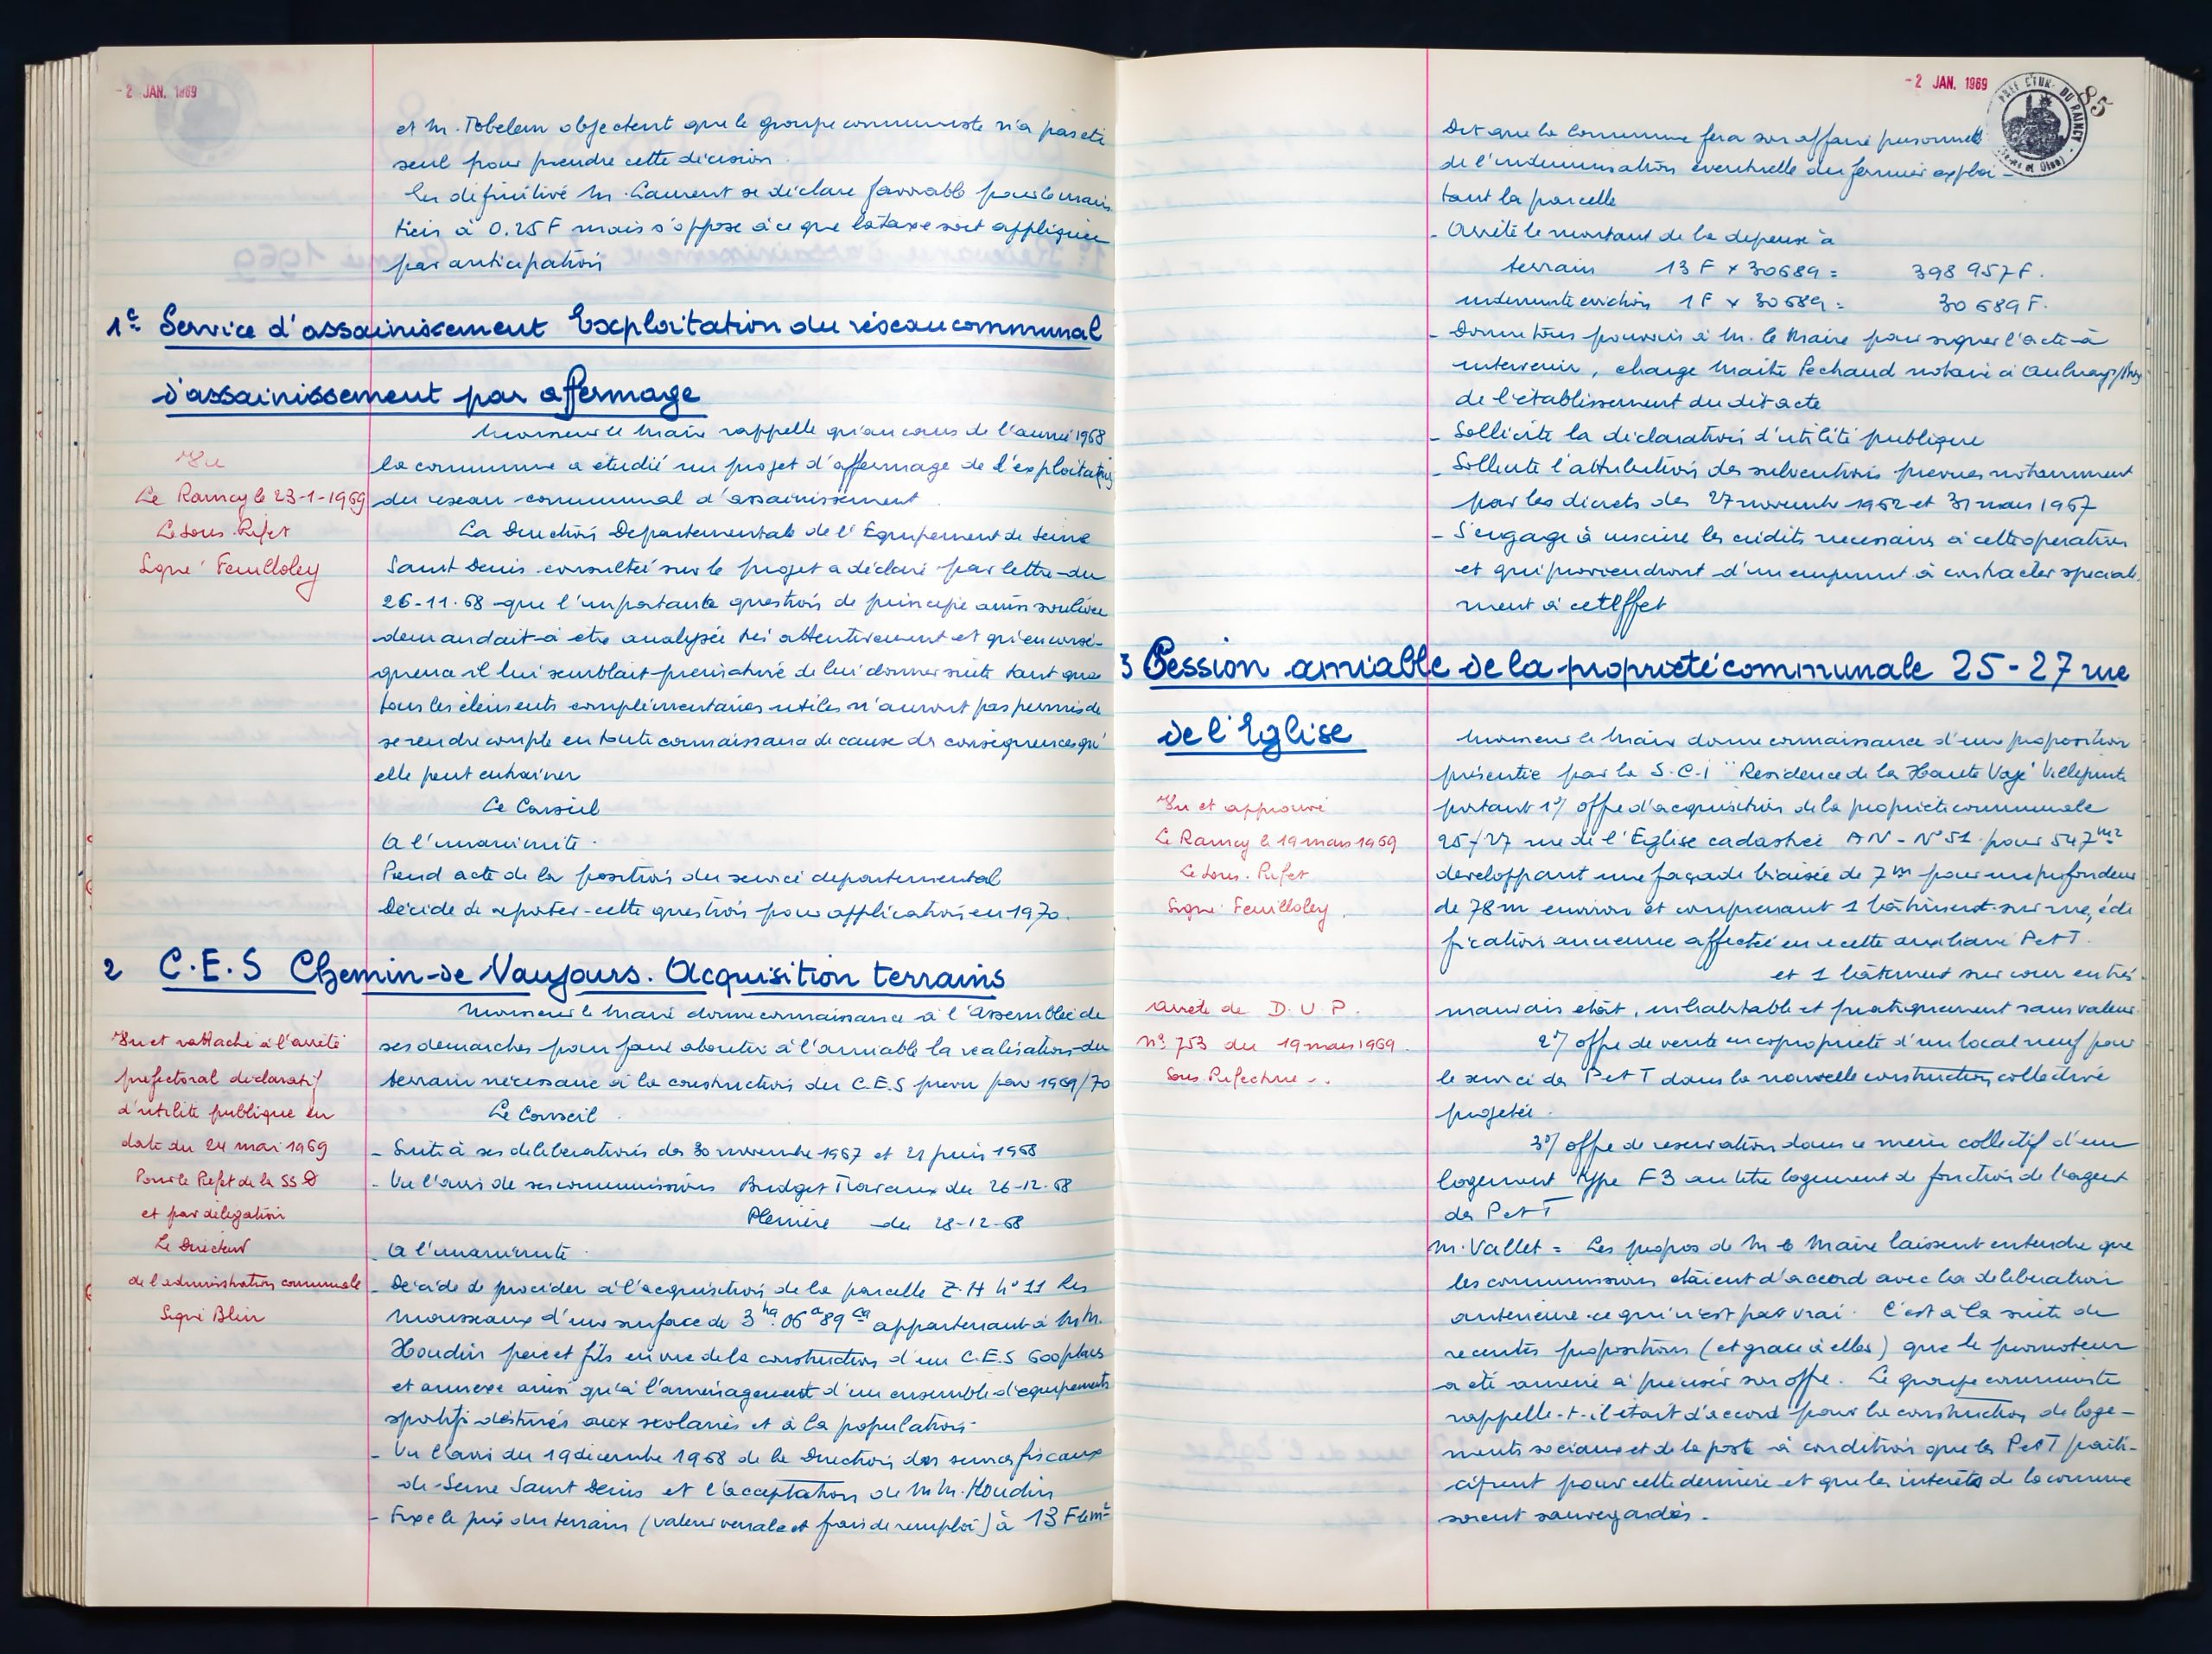 - 2 JAN. 1969
et M. Tobelem objectent que le groupe communiste n'a pas été
seul pour prendre cette décision.
En définitive M. Laurent se déclare favorable pour le main
tien à 0.25 F mais s'oppose à ce que la taxe soit appliquée
par anticipation
1e Service d'assainissement Exploitation du réseau communal
d'assainissement par affermage
Monsieur le Maire rappelle qu'au cours de l'année 1968
la commune a étudié un projet d'affermage de l'exploitation
du reseau communal d'assainissement.
La Direction Departementale de l'Equipement de Seine
Saint Denis consultée sur le projet a déclaré par lettre du
26-11.68 que l'importante question de principe ainsi soulevée
demandait à etre analysée très attentivement et qu'en consé-
quence il lui semblait prematuré de lui donner suite tant que
tous les éléments complémentaires utiles n'auront pas permis de
se rendre compte en toute connaissance de cause des conséquences qu'
elle peut entrainer
Le Conseil
A l'unanimité.
Prend acte de la position du service departemental
Décide de reporter cette question pour application en 1970.
Vu
Le Raincy le 23-1-1969
Le Sous. Préfet
Signé Feuilloley
2 C.E.S Chemin de Vaujours. Acquisition terrains
Monsieur le Maire donne connaissance à l'Assemblée de
ses demarches pour faire aboutir à l'amiable la realisation du
terrain nécessaire à la construction du C.E.S prevu pour 1969/70
Le Conseil.
- Suite à ses deliberations des 30 novembre 1967 et 21 juin 1968
- Vu l'avis de ses commissions Budget Travaux du 26-12-68
Pleniere du 28-12-68
- A l'unanimité.
- Décide de procéder à l'acquisition de la parcelle Z.H n° 11 Les
Mousseaux d'une surface de 3 ha. 06 a 89 ca appartenant à MM.
Houdin pere et fils en vue de la construction d'un C.E.S 600 places
et annexe ainsi qu'à l'aménagement d'un ensemble d'equipements
sportifs destinés aux scolaires et à la population.
- Vu l'avis du 19 décembre 1968 de la Direction des services fiscaux
de Seine Saint Denis et l'acceptation de MM. Houdin
- Fixe le prix du terrain (valeur venale et frais de remploi) à 13 F le m2
Vu et rattaché à l'arrêté
prefectoral declaratif
d'utilité publique en
date du 24 mai 1969
Pour le Prefet de la SSD
et par délégation
Le Directeur
de l'administration communale
Signé Blin
- 2 JAN. 1969
85
DU RAINCY
Dit que la Commune fera son affaire personnelle
de l'indemnisation éventuelle du fermier exploi-
tant la parcelle
- Arrête le montant de la depense à
terrain 13 F x 30689 = 398 957 F.
indemnité eviction 1 F x 30689 = 30 689 F.
- Donne tous pouvoirs à M. le Maire pour signer l'acte à
intervenir, charge Maitre Pechaud notaire à Aulnay s/Bois
de l'établissement du dit acte
- Sollicite la déclaration d'utilité publique
- Sollicite l'attribution des subventions prevues notamment
par les décrets des 27 novembre 1962 et 31 mars 1967
- S'engage à inscrire les crédits necessaires à cette operation
et qui proviendront d'un emprunt à contracter speciale
ment à cet effet
3 Cession amiable de la propriété communale 25 - 27 rue
de l'Eglise
Monsieur le Maire donne connaissance d'une proposition
présentée par la S.C.I "Residence de la Haute Voye" Villepinte
portant 1°/ offre d'acquisition de la propriété communale
25/27 rue de l'Eglise cadastrée AN - N° 51 pour 547 m2
developpant une façade biaisée de 7 m pour une profondeur
de 78 m environ et comprenant 1 bâtiment sur rue, édi
fication ancienne affectée en recette auxiliaire P et T.
et 1 bâtiment sur cour en très
mauvais état, inhabitable et pratiquement sans valeur.
2°/ offre de vente en copropriété d'un local neuf pour
le service des P et T dans la nouvelle construction collective
projetée.
3°/ offre de reservation dans ce meme collectif d'un
logement type F3 au titre logement de fonction de l'agent
des P et T
M. Vallet = Les propos de M le Maire laissent entendre que
les commissions étaient d'accord avec la deliberation
anterieure ce qui n'est pas vrai. C'est à la suite de
recentes propositions (et grace à elles) que le promoteur
a été amené à préciser son offre. Le groupe communiste
rappelle-t-il était d'accord pour la construction de loge-
ments sociaux et de la poste à condition que les P et T parti-
cipent pour cette derniere et que les interêts de la commune
soient sauvegardés.
Vu et approuvé
Le Raincy le 19 mars 1969
Le Sous. Préfet
Signé Feuilloley.
Arrêté de D.U.P.
n° 753 du 19 mars 1969.
Sous Prefecture..